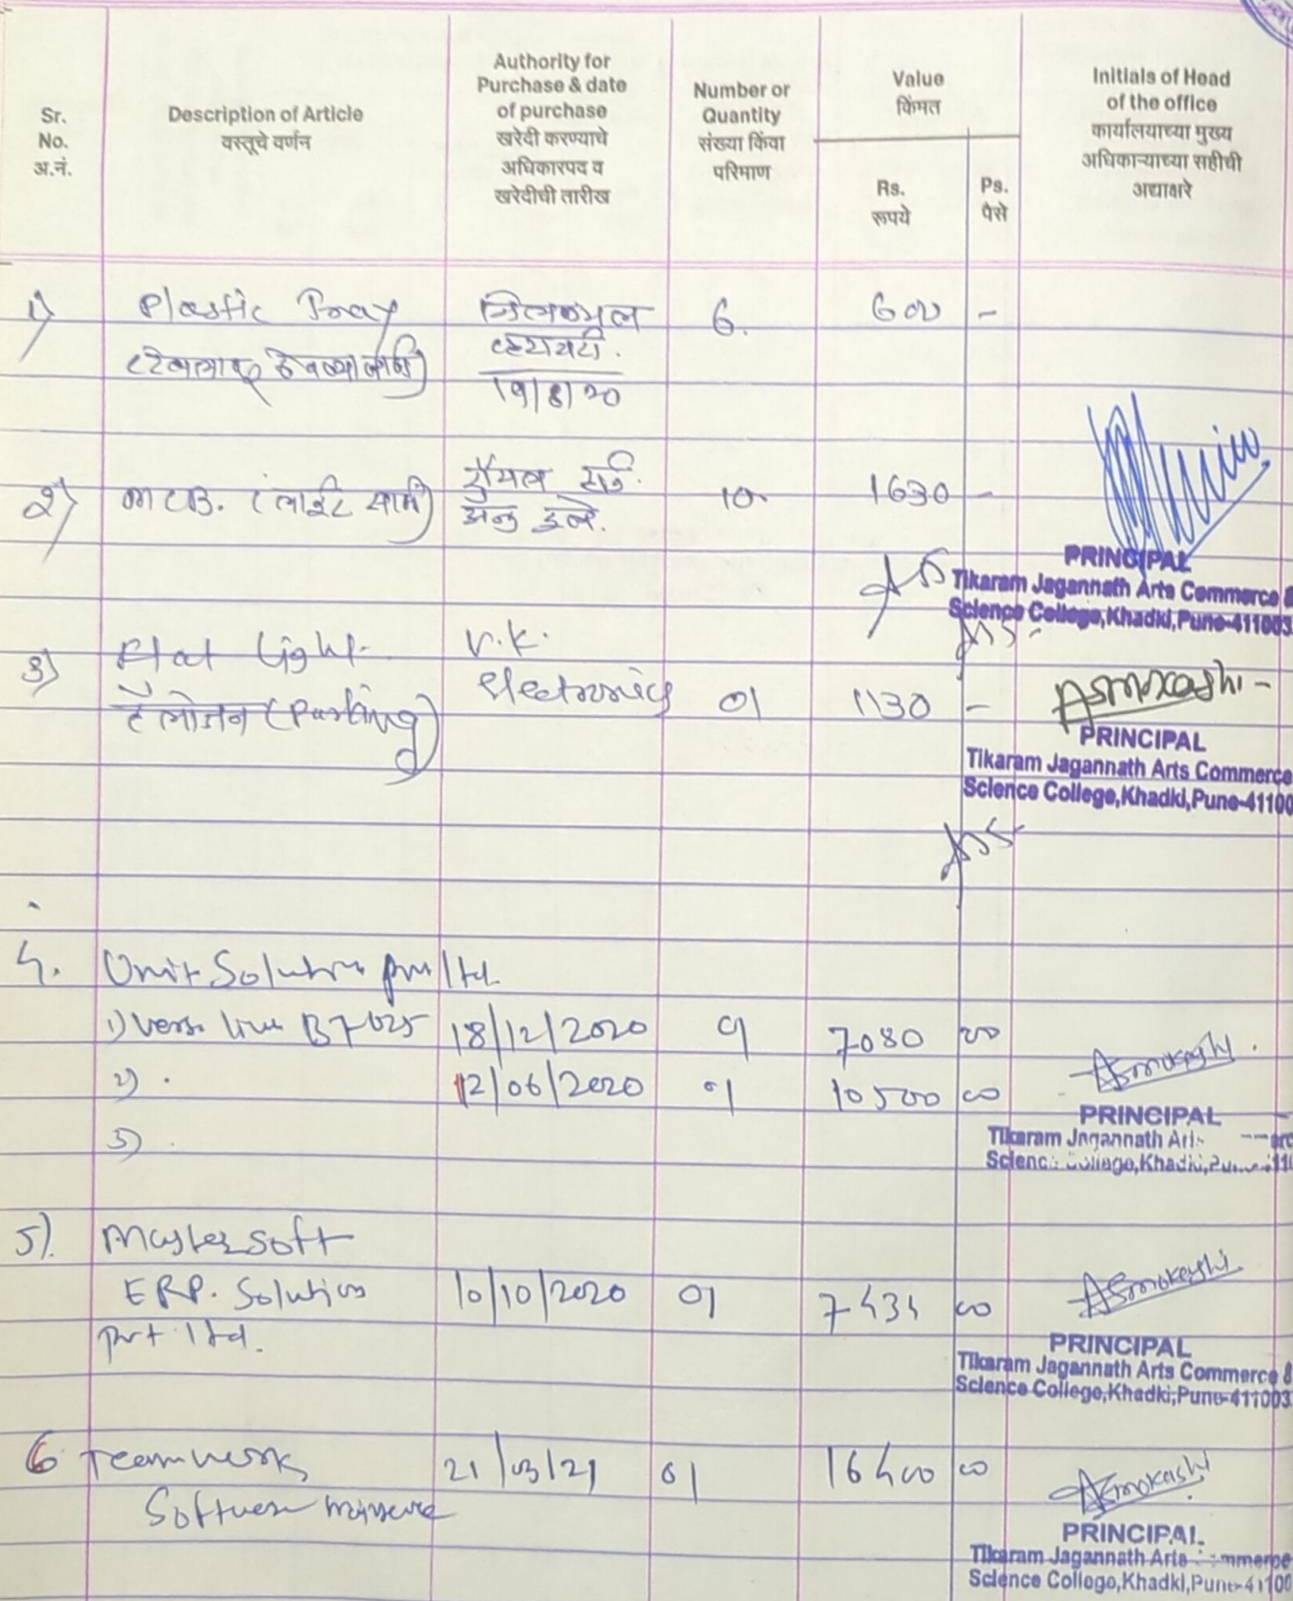 Sr.
No.
अ.नं.
Description of Article
वस्तूचे वर्णन
Authority for
Purchase & date
of purchase
खरेदी करण्याचे
अधिकारपद व
खरेदीची तारीख
Number or
Quantity
संख्या किंवा
परिमाण
Value
किंमत
Rs.
रूपये
Ps.
पैसे
Initials of Head
of the office
कार्यालयाच्या मुख्य
अधिकाऱ्याच्या सहीची
अद्याक्षरे
1) Plastic Tray 6. 600 -
व्हरायटी.
19/8/20
2) (लाईट साठी) रॉयल 10. 1630 -
PRINCIPAL
Tikaram Jagannath Arts Commerce &
Science College,Khadki,Pune-411003
3) Flat Light V.K.
हॅलोजन (Parking) Electronics 01 1130 -
Asmokashi
PRINCIPAL
Tikaram Jagannath Arts Commerce
Science College,Khadki,Pune-41100
4. Solution ltd.
1) B7025 18/12/2020 01 7080 00
2) . 12/06/2020 01 10500 00
3) .
Asmokashi
PRINCIPAL
Tikaram Jagannath Art
Science College,Khadki,
5). Mastersoft
ERP. Solution 10/10/2020 01 7434 00
pvt ltd.
Asmokashi
PRINCIPAL
Tikaram Jagannath Arts Commerce &
Science College,Khadki,Pune-411003
6 Teamwork 21/03/21 01 16400 00
Software
Asmokashi
PRINCIPAL
Tikaram Jagannath Arts Commerce
Science College,Khadki,Pune-41100